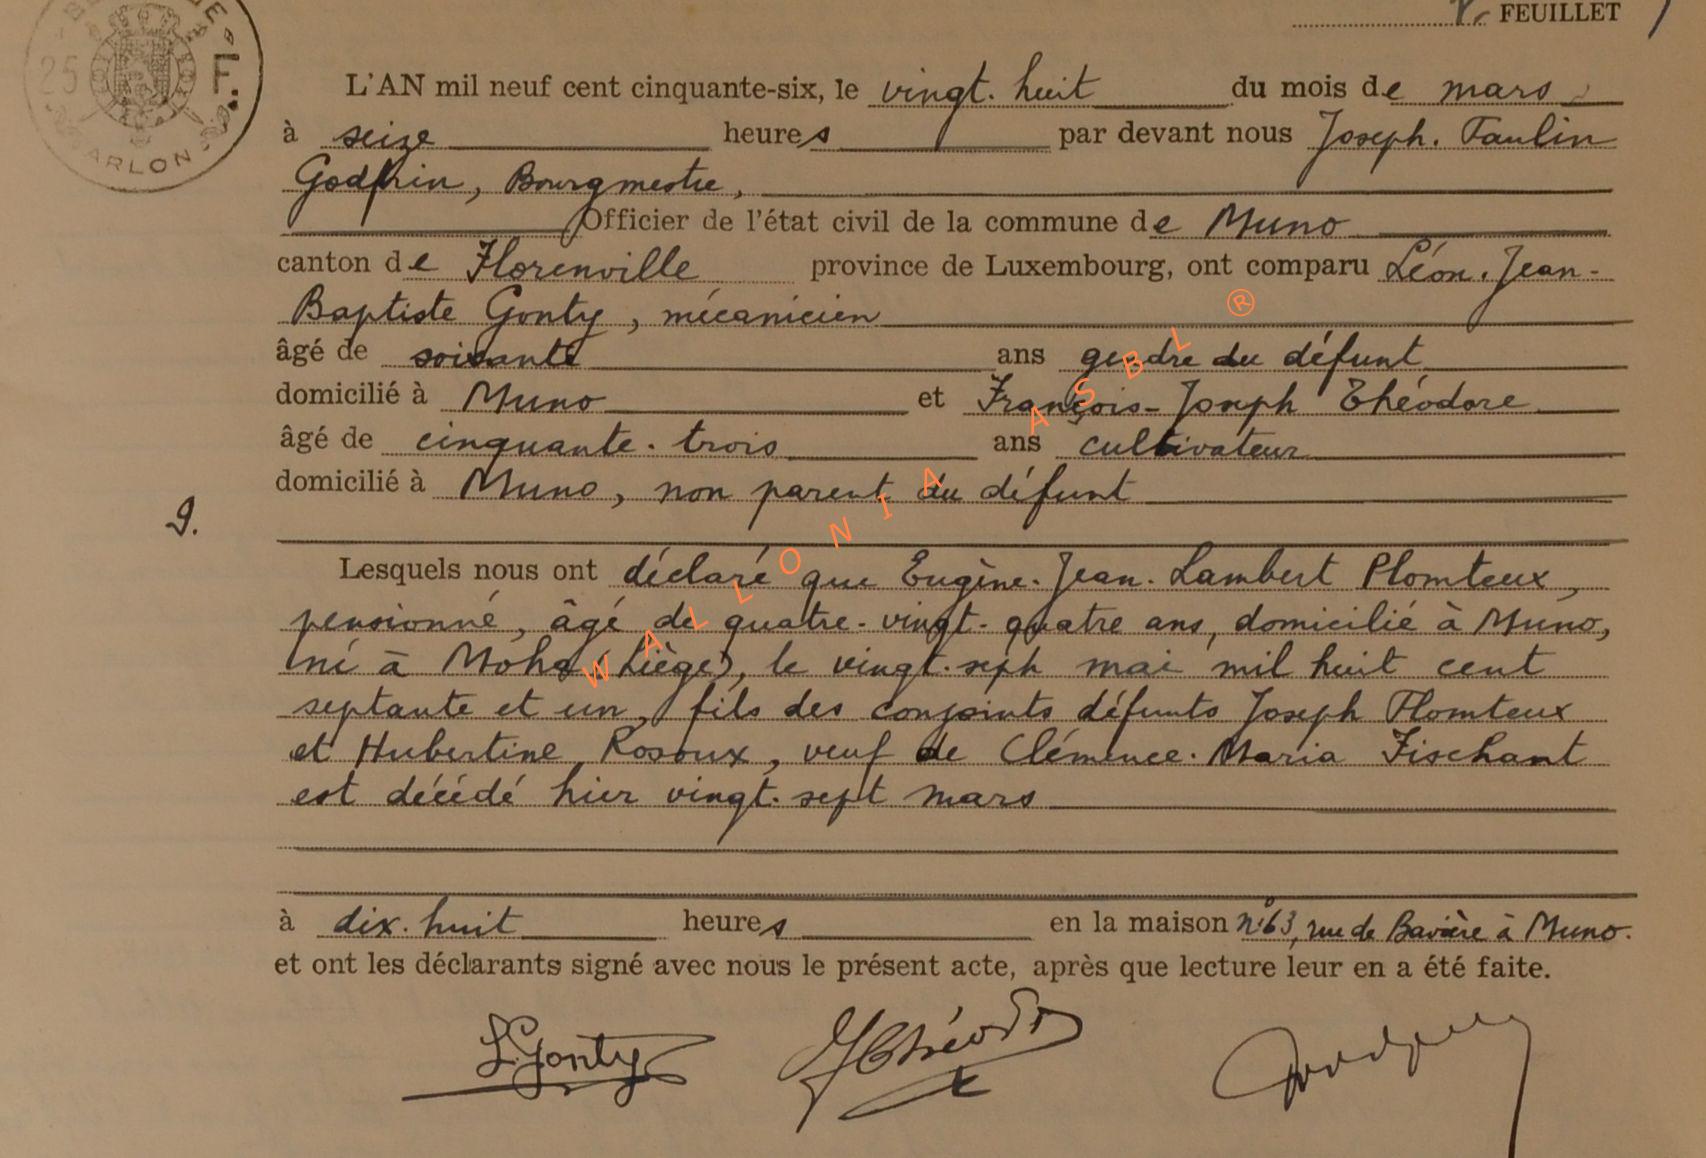 FEUILLET
25 F.
ARLON
L'AN mil neuf cent cinquante-six, le vingt-huit du mois de mars
à seize heures par devant nous Joseph-Paulin
Godfrin, Bourgmestre,
Officier de l'état civil de la commune de Muno
canton de Florenville province de Luxembourg, ont comparu Léon-Jean-
Baptiste Gonty, mécanicien
âgé de soixante ans gendre du défunt
domicilié à Muno et François-Joseph Théodore
âgé de cinquante-trois ans cultivateur
domicilié à Muno, non parent du défunt
9.
Lesquels nous ont déclaré que Eugène-Jean-Lambert Plomteux,
pensionné, âgé de quatre-vingt-quatre ans, domicilié à Muno,
né à Moha (Liège), le vingt-sept mai mil huit cent
septante et un, fils des conjoints défunts Joseph Plomteux
et Hubertine Rosoux, veuf de Clémence-Maria Fischant
est décédé hier vingt-sept mars
à dix-huit heures en la maison n° 63, rue de Bavière à Muno.
et ont les déclarants signé avec nous le présent acte, après que lecture leur en a été faite.
L. Gonty
WALLONIA ASBL ®